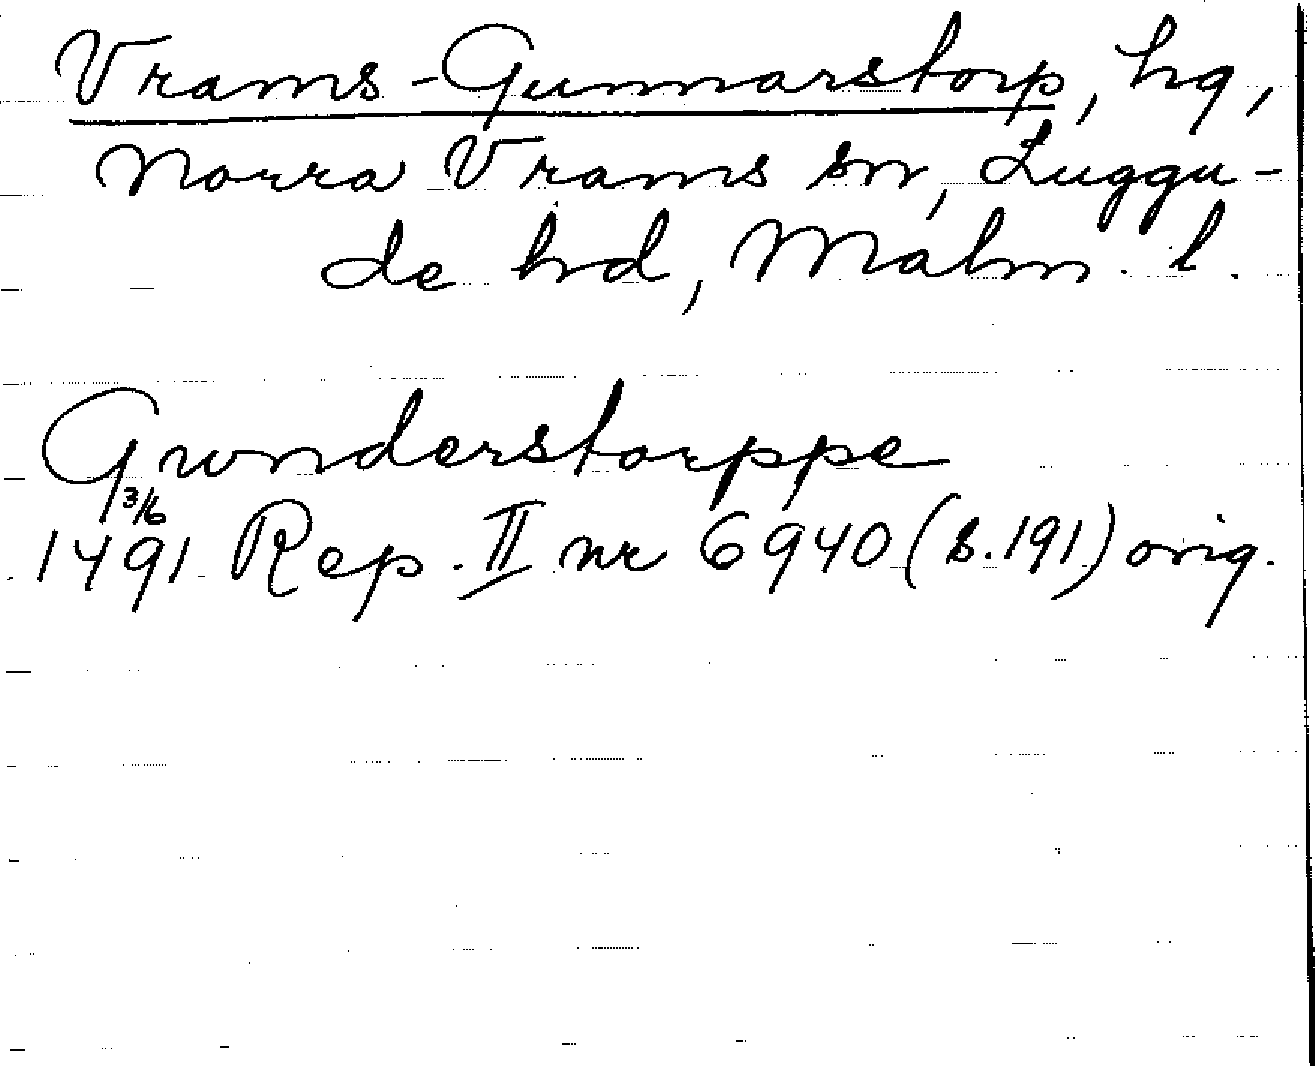 Vrams-Gunnarstorp, hg,
Norra Vrams sn, Luggu-
de hd, Malm. l.
Gwnderstorppe
3/6
1491 Rep. II nr 6940 (s. 191) orig.